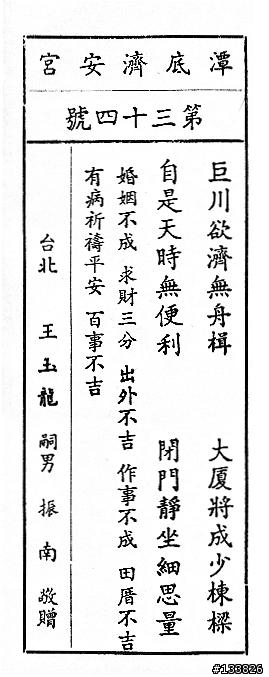 潭底濟安宮
第三十四號
巨川欲濟無舟楫 大厦將成少棟樑
自是天時無便利 閉門靜坐細思量
婚姻不成 求財三分 出外不吉 作事不成 田厝不吉
有病祈禱平安 百事不吉
台北 王玉龍 嗣男 振南 敬贈
#133826